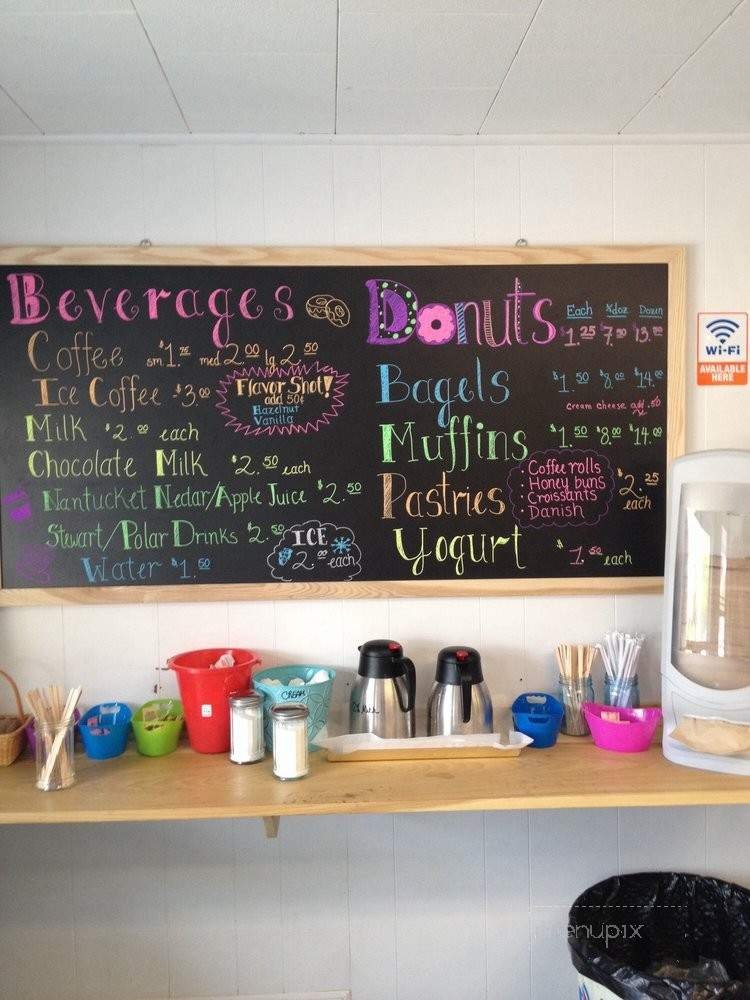 Beverages
Coffee sm $1.75 med 2.00 lg 2.50
Ice Coffee $3.00
Flavor Shot!
add 50¢
Hazelnut
Vanilla
Milk $2.00 each
Chocolate Milk $2.50 each
Nantucket Nectar/Apple Juice $2.50
Stewart/Polar Drinks $2.50
Water $1.50
ICE
$2.00 each
Donuts Each ½doz Dozen
$1.25 $7.50 $13.00
Bagels $1.50 $8.00 $14.00
cream cheese add .50
Muffins $1.50 $8.00 $14.00
Pastries $2.25 each
· Coffee rolls
· Honey buns
· Croissants
· Danish
Yogurt $1.50 each
Wi-Fi
AVAILABLE
HERE
CREAM
menupix